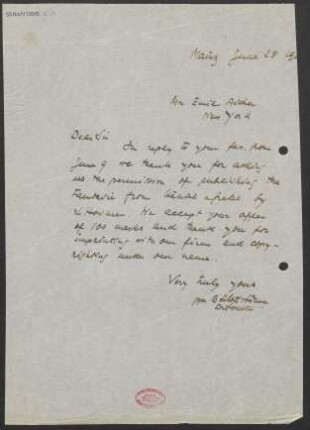 Mainz June 28
Mr Emil Ascher
New York
Dear Sir In reply to your fav. from
June 9 we thank you for asking
us the permission of publishing the
Fantasia from
by
We accept your offer
of 100 marks and thank you for
imprinting with our firm and copy-
righting under our name.
Very truly yours